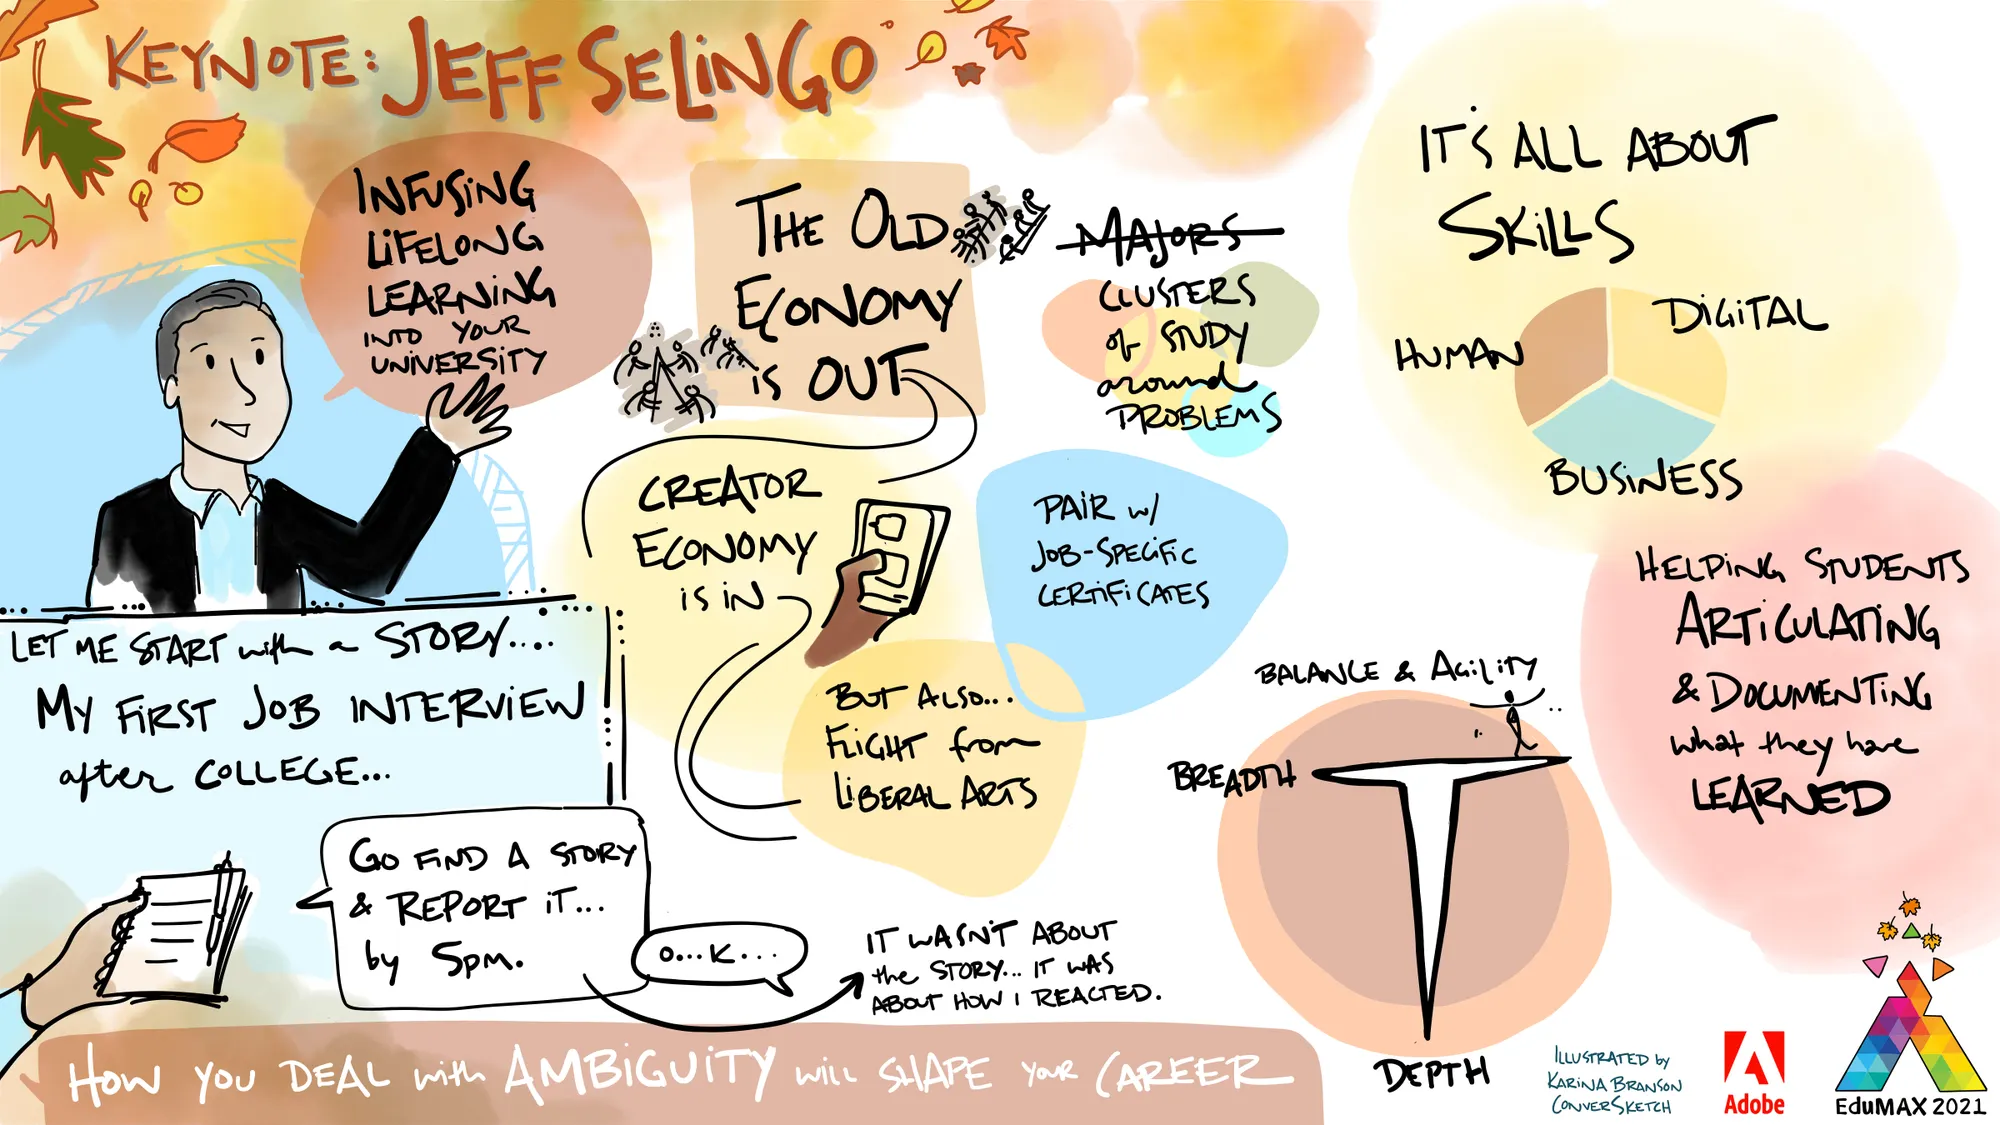 KEYNOTE: JEFF SELINGO
INFUSING
LIFELONG
LEARNING
INTO YOUR
UNIVERSITY
LET ME START with a STORY....
MY FIRST JOB INTERVIEW
after COLLEGE...
GO FIND A STORY
& REPORT IT...
by 5pm.
O...K...
IT WASN'T ABOUT
the STORY... IT WAS
ABOUT HOW I REACTED.
HOW YOU DEAL with AMBIGUITY will SHAPE YOUR CAREER
THE OLD
ECONOMY
is OUT
CREATOR
ECONOMY
is IN
BUT ALSO...
FLIGHT from
LIBERAL ARTS
MAJORS
CLUSTERS
of STUDY
around
PROBLEMS
PAIR w/
JOB-SPECIFIC
CERTIFICATES
BALANCE & AGILITY
BREADTH
DEPTH
IT'S ALL ABOUT
SKILLS
HUMAN
DIGITAL
BUSINESS
HELPING STUDENTS
ARTICULATING
& DOCUMENTING
what they have
LEARNED
ILLUSTRATED by
KARINA BRANSON
CONVERSKETCH
Adobe
EduMAX 2021